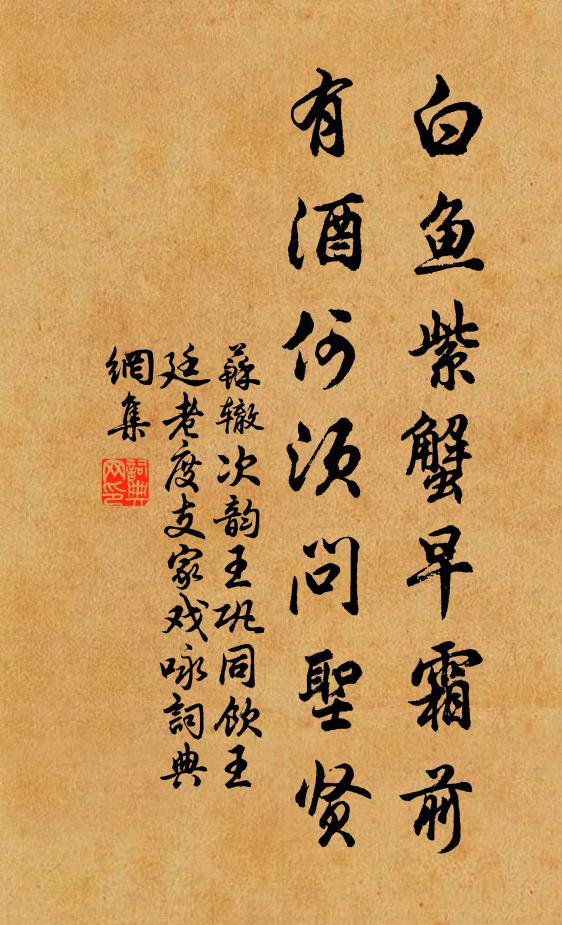 白鱼紫蟹早霜前
有酒何须问聖贤
蘇辙次韵王巩同饮王
廷老度支家戏咏詞典
網集
詞典
网印